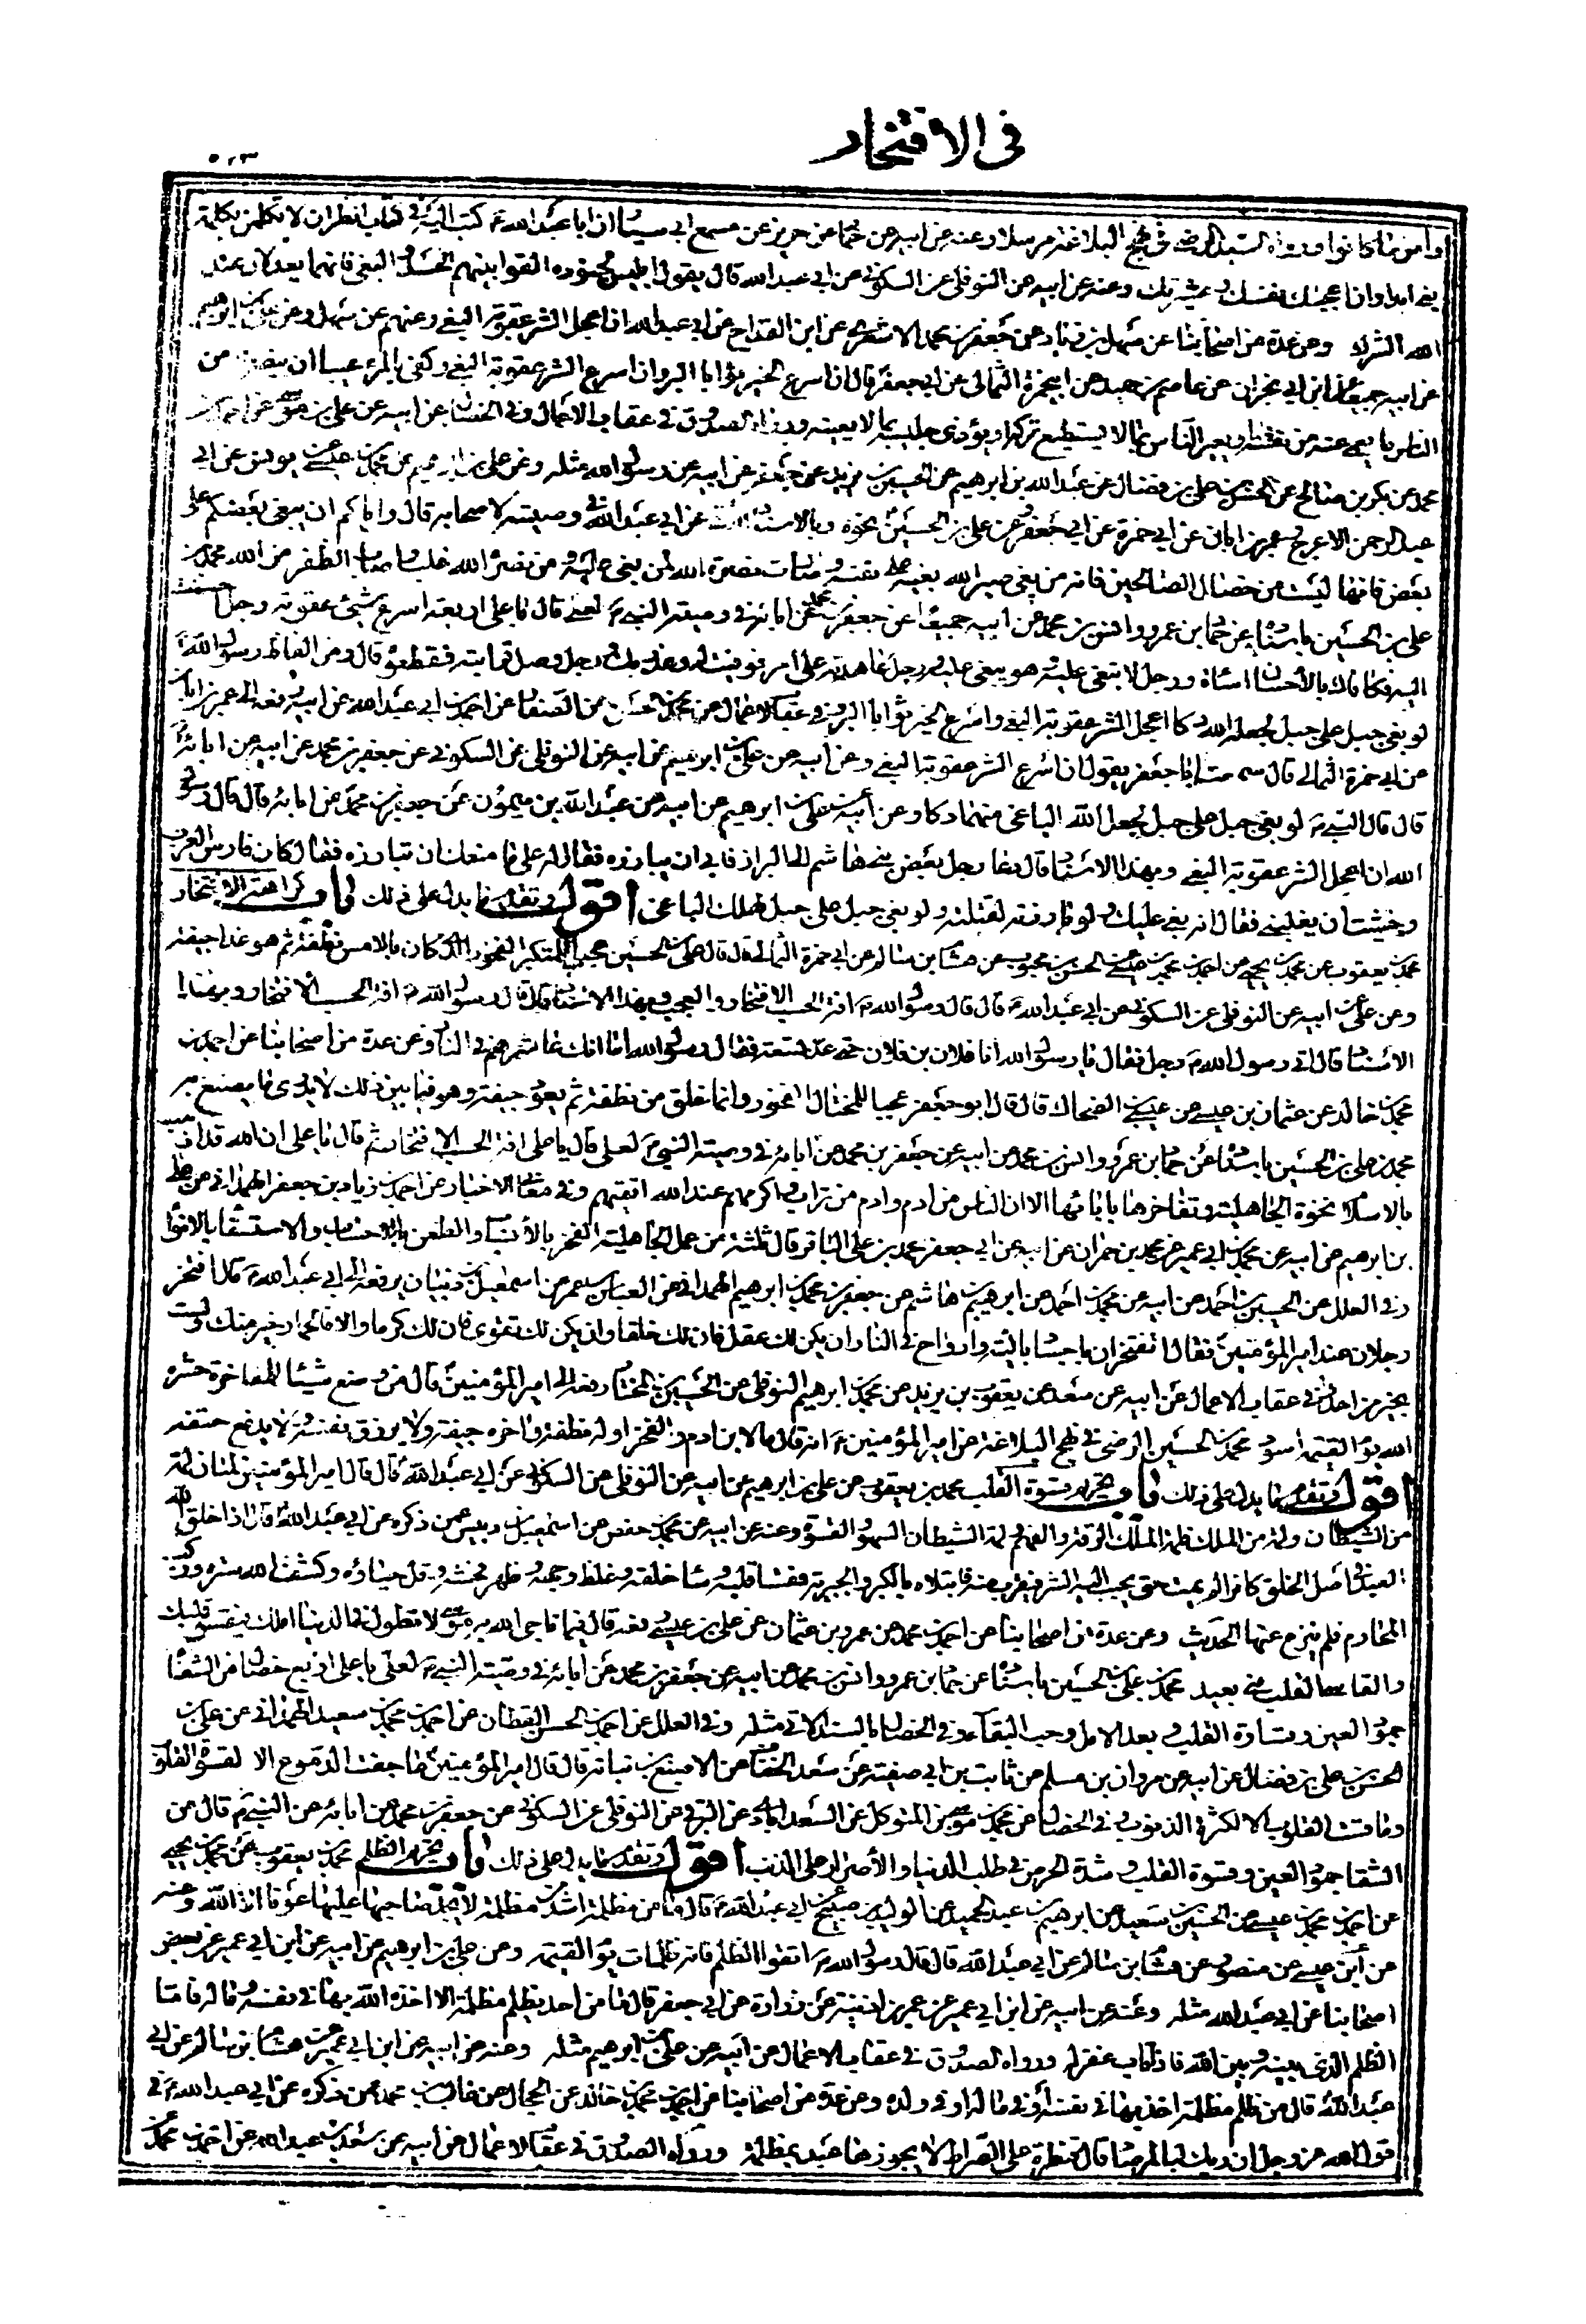 في الافتخار
٥٠٣
وامن بما كانوا ورواه السيد الرضى في نهج البلاغة مرسلا وعنه عن ابيه عن حماد عن حريز عن مسمع ابى سيار ان ابا عبد الله ع كتب اليه في كتاب انظر ان لا تكلمن بكلمة
بغي ابدا وان اعجبتك نفسك وعشيرتك وعنه عن ابيه عن النوفلى عن السكونى عن ابى عبد الله قال يقول ابليس لجنوده القوا بينهم الحسد والبغى فانهما يعدلان عند
الله الشرك وعن عدة من اصحابنا عن سهل بن زياد عن جعفر بن محمد الاشعرى عن ابن القداح عن ابى عبد الله ان اعجل الشر عقوبة البغى وعنهم عن سهل وعن على بن ابرهيم
عن ابيه جميعا عن ابن ابى نجران عن عاصم بن حميد عن ابيحمزة الثمالى عن ابى جعفر قال ان اسرع الخير ثوابا البر وان اسرع الشر عقوبة البغى وكفى بالمرء عيبا ان يبصر من
الناس ما يعمى عنه من نفسه او يعير الناس بما لا يستطيع تركه او يؤذى جليسه بما لا يعنيه ورواه الصدوق في عقاب الاعمال وفى الخصال عن ابيه عن على بن موسى عن احمد بن
محمد عن بكر بن صالح عن الحسن بن على بن فضال عن عبد الله بن ابرهيم عن الحسين بن زيد عن جعفر عن ابيه عن رسول الله مثله وعن على بن ابرهيم عن محمد بن عيسى عن يونس عن ابى
عبد الرحمن الاعرج وعمر بن ابان عن ابى حمزة عن ابى جعفر عن على بن الحسين نحوه وبالاسناد عن ابى عبد الله في وصيته لاصحابه قال واياكم ان يبغى بعضكم على
بعض فانها ليست من خصال الصالحين فانه من بغى صير الله بغيه على نفسه وصارت نصرة الله لمن بغى عليه ومن نصره الله غلب واصاب الظفر من الله محمد بن
على بن الحسين باسناده عن حماد بن عمرو وانس بن محمد عن ابيه جميعا عن جعفر بن محمد عن ابائه في وصية النبى ص لعلى قال يا على اربعة اسرع شيء عقوبة رجل احسنت
اليه فكافاك بالاحسان اساءة ورجل لا تبغى عليه وهو يبغى عليك ورجل عاهدته على امر فوفيت له وغدر بك ورجل وصل قرابته فقطعوه قال ومن الفاظ رسول الله ص
لو بغى جبل على جبل لجعله الله دكا اعجل الشر عقوبة البغى واسرع الخير ثوابا البر وفى عقاب الاعمال عن محمد بن الحسن عن الصفار عن احمد بن ابى عبد الله عن ابيه رفعه الى عمر بن ابان
عن ابى حمزة الثمالى قال سمعت ابا جعفر يقول ان اسرع الشر عقوبة البغى وعن ابيه عن على بن ابرهيم عن ابيه عن النوفلى عن السكونى عن جعفر بن محمد عن ابيه عن ابائه
قال قال النبى ص لو بغى جبل على جبل لجعل الله الباغى منهما دكا وعن ابيه عن على بن ابرهيم عن ابيه عن عبد الله بن ميمون عن جعفر بن محمد عن ابائه قال قال رسول
الله ان اعجل الشر عقوبة البغى وبهذا الاسناد قال دعا رجل بعض بنى هاشم الى البراز فابى ان يبارزه فقال له على ما منعك ان تبارزه فقال كان فارس العرب
وخشيت ان يغلبنى فقال انه بغى عليك ولو بارزته لقتلته ولو بغى جبل على جبل لهلك الباغى اقول وتقدم ما يدل على ذلك باب كراهة الافتخار
محمد بن يعقوب عن محمد بن يحيى عن احمد بن محمد بن عيسى عن الحسن بن محبوب عن هشام بن سالم عن ابى حمزة الثمالى قال قال على بن الحسين عجبا للمتكبر الفخور الذى كان بالامس نطفة ثم هو غدا جيفة
وعن على بن ابيه عن النوفلى عن السكونى عن ابى عبد الله ع قال قال رسول الله ص افة الحسب الافتخار والعجب وبهذا الاسناد قال قال رسول الله ص افة الحسب الافتخار وبهذا
الاسناد قال اتى رسول الله ص رجل فقال يا رسول الله انا فلان بن فلان حتى عد تسعة فقال رسول الله اما انك عاشرهم في النار وعن عدة من اصحابنا عن احمد بن
محمد بن خالد عن عثمان بن عيسى عن عيسى الضحاك قال قال ابو جعفر عجبا للمختال الفخور وانما خلق من نطفة ثم يعود جيفة وهو فيما بين ذلك لا يدرى ما يصنع به
محمد بن على بن الحسين باسناده عن حماد بن عمرو وانس بن محمد عن ابيه عن جعفر بن محمد عن ابائه في وصية النبى ص لعلى قال يا على افة الحسب الافتخار ثم قال يا على ان الله قد اذهب
بالاسلام نخوة الجاهلية وتفاخرها بابائها الا ان الناس من ادم وادم من تراب واكرمهم عند الله اتقيهم وفى معانى الاخبار عن احمد بن زياد بن جعفر الهمدانى عن على
بن ابرهيم عن ابيه عن محمد بن ابى عمير عن محمد بن حمران عن ابيه عن ابى جعفر محمد بن على الباقر قال ثلثة من عمل الجاهلية الفخر بالأنساب والطعن بالاحساب والاستسقاء بالانواء
وفى العلل عن الحسين بن احمد عن ابيه عن محمد بن احمد عن ابرهيم بن هاشم عن جعفر بن محمد بن ابرهيم الهمدانى عن العباس بن عمر عن اسمعيل بن دينار يرفعه الى ابى عبد الله ع قال افتخر
رجلان عند امير المؤمنين فقال اتفتخران باجساد بالية وارواح في النار ان يكن لك عقل فان لك خلقا وان يكن لك تقوى فان لك كرما والا فالحمار خير منك ولست
بخير من احد وفى عقاب الاعمال عن ابيه عن سعد عن يعقوب بن يزيد عن محمد بن ابرهيم النوفلى عن الحسين بن المختار رفعه الى امير المؤمنين قال من صنع شيئا للمفاخرة حشره
الله يوم القيمة اسود محمد بن الحسين الرضى في نهج البلاغة عن امير المؤمنين ع انه قال ما لابن ادم والفخر اوله نطفة واخره جيفة ولا يرزق نفسه ولا يدفع حتفه
اقول وتقدم ما يدل على ذلك باب تحريم قسوة القلب محمد بن يعقوب عن على بن ابرهيم عن ابيه عن النوفلى عن السكونى عن ابى عبد الله قال قال امير المؤمنين لمتان لمة
من الشيطان ولمة من الملك فلمة الملك الرقة والفهم ولمة الشيطان السهو والقسوة وعنه عن ابيه عن محمد بن حفص عن اسمعيل بن دبيس عمن ذكره عن ابى عبد الله قال اذا خلق الله
العبد في اصل الخلق كافرا لم يمت حتى يحبب اليه الشر فيقرب منه فابتلاه بالكبر والجبرية فقسا قلبه وساء خلقه وغلظ وجهه وظهر فحشه وقل حياؤه وكشف الله ستره وركب
المحارم فلم ينزع عنها الحديث وعن عدة من اصحابنا عن احمد بن محمد عن عمرو بن عثمان عن على بن عيسى رفعه قال فيما ناجى الله به موسى لا تطول في الدنيا املك فيقسو قلبك
والقاسى القلب منى بعيد محمد بن على بن الحسين باسناده عن حماد بن عمرو وانس بن محمد عن ابيه عن جعفر بن محمد عن ابائه في وصية النبى ص لعلى يا على اربع خصال من الشقاء
جمود العين وقساوة القلب وبعد الامل وحب البقاء وفى الخصال بالسند الاتى مثله وفى العلل عن احمد بن الحسن القطان عن احمد بن محمد بن سعيد الهمدانى عن على بن
الحسن بن على بن فضال عن ابيه عن مروان بن مسلم عن ثابت بن ابى صفية عن سعد الخفاف عن الاصبغ بن نباتة قال قال امير المؤمنين ما جفت الدموع الا لقسوة القلوب
وما قست القلوب الا لكثرة الذنوب وفى الخصال عن محمد بن موسى بن المتوكل عن السعدابادى عن البرقى عن النوفلى عن السكونى عن جعفر بن محمد عن ابائه عن النبى ص قال من
الشقاء جمود العين وقسوة القلب وشدة الحرص في طلب الدنيا والأصرار على الذنب اقول وتقدم ما يدل على ذلك باب تحريم الظلم محمد بن يعقوب عن محمد بن يحيى
عن احمد بن محمد بن عيسى عن الحسين بن سعيد عن ابرهيم بن عبد الحميد عن الوليد بن صبيح عن ابى عبد الله ع قال ما من مظلمة اشد من مظلمة لا يجد صاحبها عليها عونا الا الله وعنه
عن ابن عيسى عن منصور عن هشام بن سالم عن ابى عبد الله قال قال رسول الله ص اتقوا الظلم فانه ظلمات يوم القيمة وعن على بن ابرهيم عن ابيه عن ابن ابى عمير عن بعض
اصحابنا عن ابى عبد الله مثله وعنه عن ابيه عن ابن ابى عمير عن عمر بن اذينة عن زرارة عن ابى جعفر قال ما من احد يظلم مظلمة الا اخذه الله بها في نفسه وماله فاما
الظلم الذى بينه وبين الله فاذا تاب غفر له ورواه الصدوق في عقاب الاعمال عن ابيه عن على بن ابرهيم مثله وعنه عن ابيه عن ابن ابى عمير عن هشام بن سالم عن ابى
عبد الله قال من ظلم مظلمة اخذ بها في نفسه او في ماله او في ولده وعن عدة من اصحابنا عن احمد بن محمد بن خالد عن الحجال عن غالب بن محمد عمن ذكره عن ابى عبد الله ع في
قول الله عز وجل ان ربك لبالمرصاد قال قنطرة على الصراط لا يجوزها عبد بمظلمة ورواه الصدوق في عقاب الاعمال عن ابيه عن سعد بن عبد الله عن احمد بن محمد